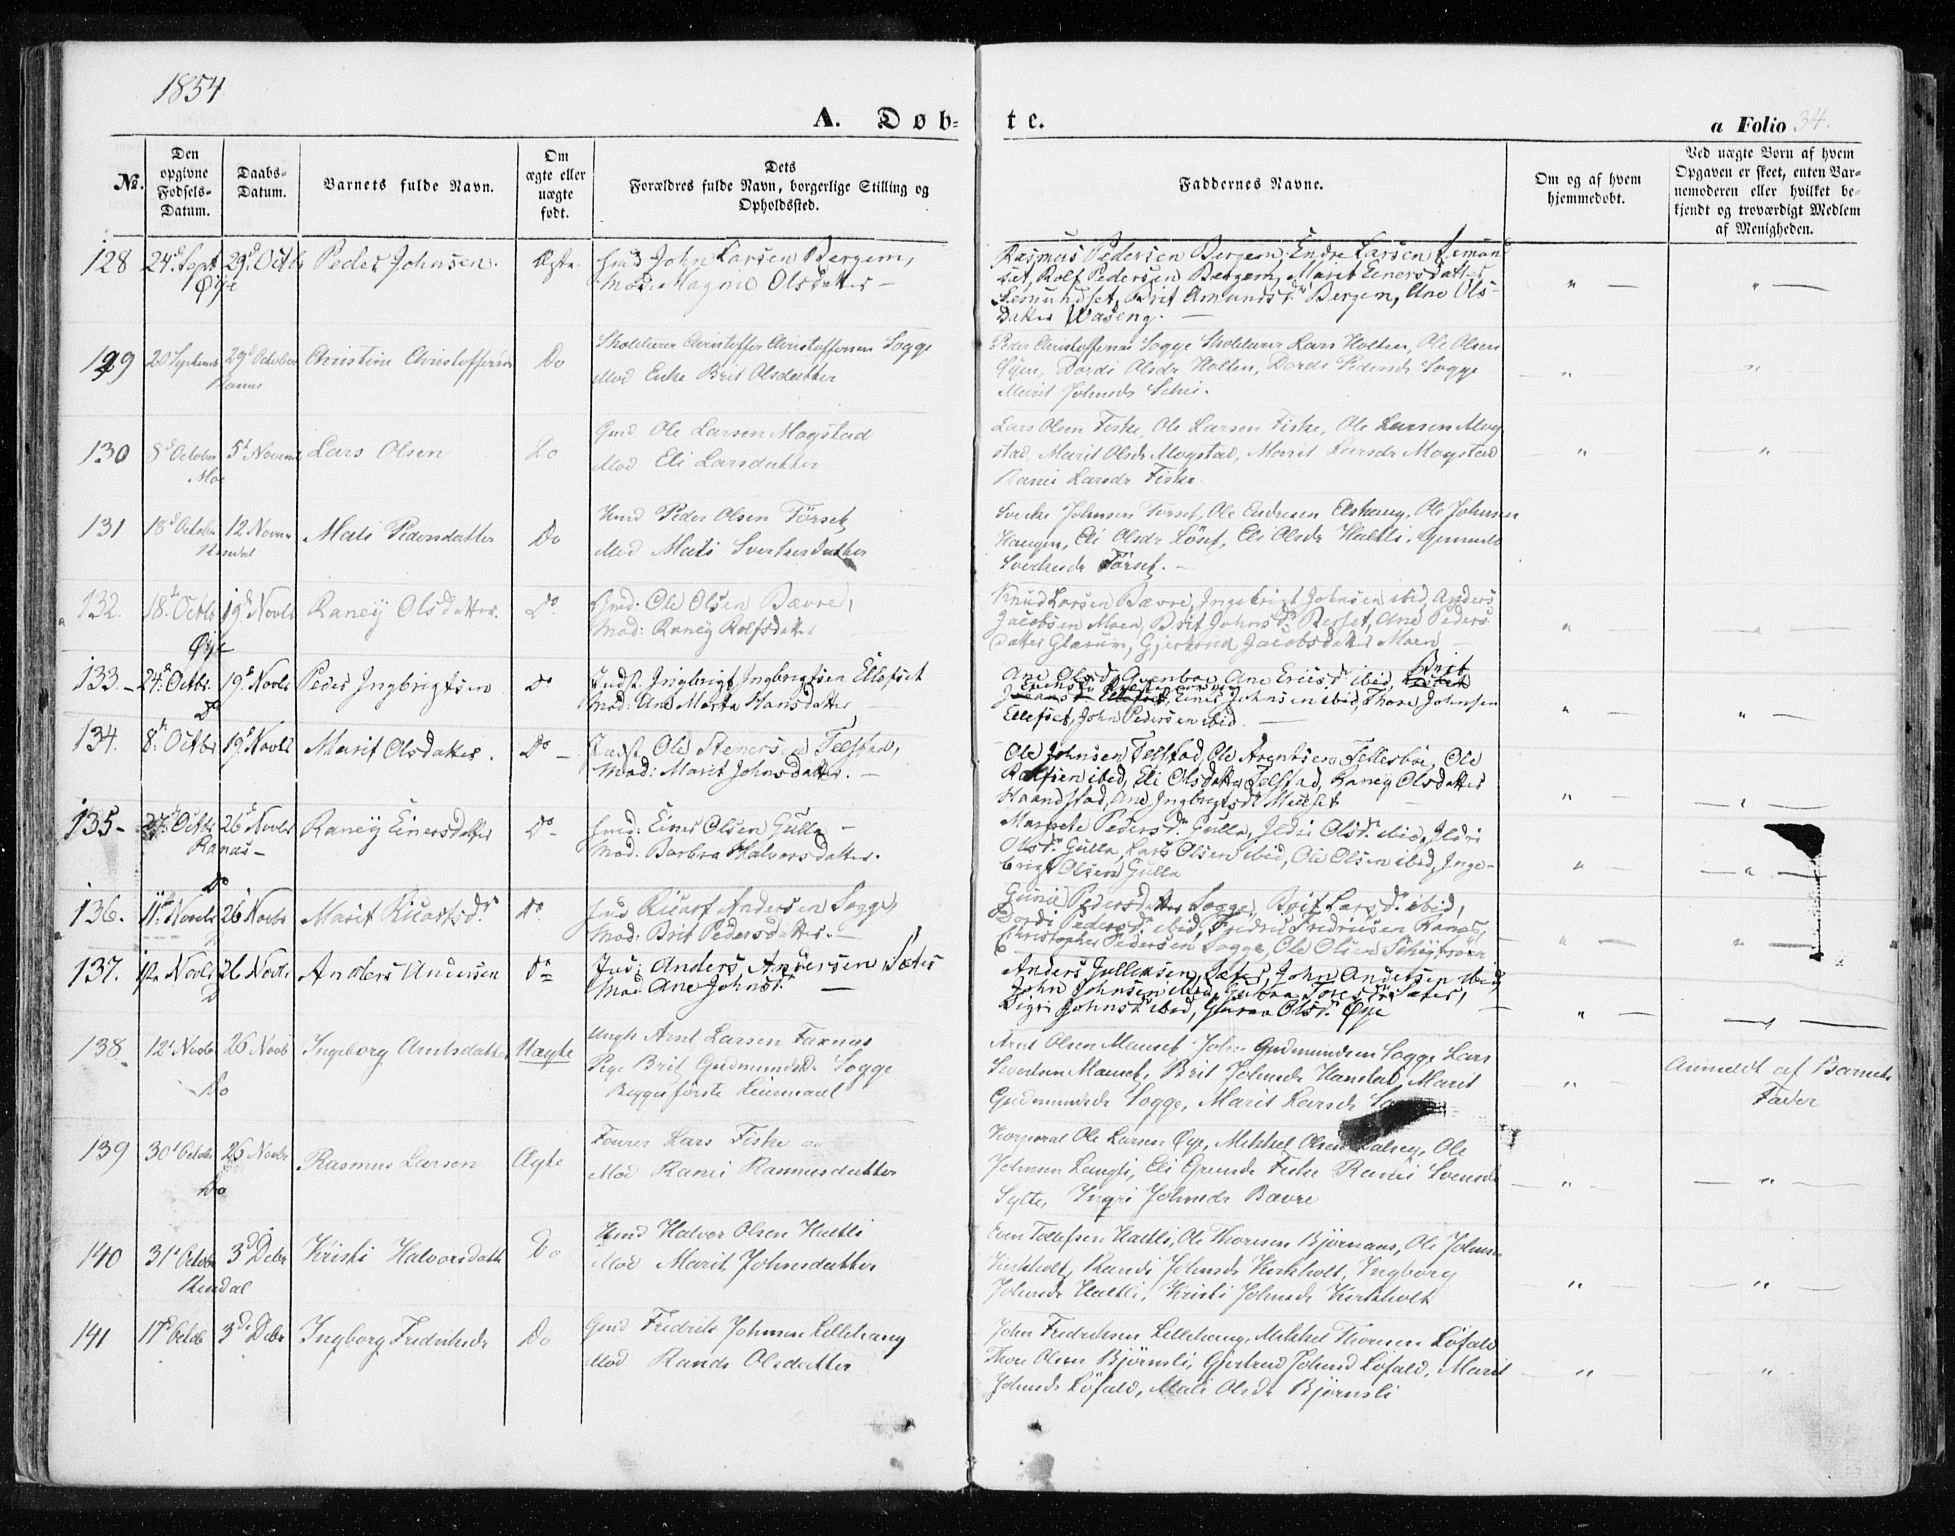 1854
A. Døb=
te.
a Folio 34.
No.
Den opgivne Fødsels-Datum.
Daabs-Datum.
Barnets fulde Navn.
Om ægte eller uægte født.
Dets Forældres fulde Navn, borgerlige Stilling og Opholdssted.
Faddernes Navne.
Om og af hvem hjemmedøbt.
Ved uægte Børn af hvem Opgaven er skeet, enten Barnemoderen eller hvilket bekjendt og troværdigt Medlem af Menigheden.
128 24d Sept 29d Octb Peder Johnsen. Ægte. Gmd John Larsen Bergem,
Øye
Mod: Magnil Olsdatter —
Rasmus Pedersen Bergem, Endre Larsen Semund
set, Rolf Pedersen Bergem, Marit Einersdatter
Semundset, Brit Amundsdr Bergem, Ane Ols-
datter Waseng. —
129 20 Septemb 29d October Christine Christoffersen Do Skolelærer Christoffer Christoffersen Sogge
Ranes
Mod Enke Brit Olsdatter
Peder Christoffersen Sogge Skolelærer Lars Holten, Ole Olsen
Øyen, Dordi Olsdr Holten, Dordi Pedersdr Sogge
Marit Johnsdr
130 8d October 5d Novemb Lars Olsen Do Gmd Ole Larsen Mogstad
Moe
Mod Eli Larsdatter
Lars Olsen Fiske, Ole Larsen Fiske, Ole Larsen Mog
stad, Marit Olsdr Mogstad, Marit Larsdr Mogstad
Ranei Larsdr Fiske
131 18d October 12 Novem Mali Pedersdatter Do Huusmd Peder Olsen Törset
Mod Mali Sivertsdatter
Johnsen Torset, Ole Endresen Elshaug, Ole Johnsen
Haugen, Eli Olsdr Löset, Eli Olsdr Haltli, Gunnild
Törset. —
132. 18d Octb 19d Novbr Raney Olsdatter. Do Gmd: Ole Olsen Bævre,
Øye
Mod: Raney Rolfsdatter
Knud Larsen Bævre, Ingebrigt Johnsen ibid, Anders
Jacobsen Moen, Brit Johnsdr Berset, Ane Peders
datter Glærum, Gjertrud Jacobsdatter Moen —
133. 24d Octbr. 19d Novbr Peder Ingbrigtsen Do Indst. Ingbrigt Ingbrigtsen Ellefset
Do
Mod: Ane Marta Hansdatter
Ane Olsdr Ane Ericsdr ibid, Brit
Einer Johnsen ibid, Thore Johnsen
Ellefset, John Pedersen ibid. —
134. 8d Octbr 19d Novbr Marit Olsdatter. Do — Indst. Ole Stenersen Telstad,
Mod: Marit Johnsdatter. —
Ole Johnsen Telstad, Ole Arentsen Fellesbøe, Ole
Rolfsen ibid, Eli Olsdatter Telstad, Raney Olsdatter
Haandstad, Ane Ingbrigtsdr
135- 27d Octbr 26d Novbr Raney Einersdatter Do Gmd: Einer Olsen Gulla —
Ranes —
Mod: Barbra Halvorsdatter.
Margrete Pedersdr Gulla, Ildri Olsdr ibid, Ildri
Olsdr Gulla, Lars Olsen ibid, Ole Olsen ibid, Inge-
brigt Olsen Gulla
Do
136. 11d Novbr 26 Novbr Marit Ricartsdr. Do. Ind Ricart Andersen Sogge,
Mod: Brit Pedersdatter. —
Gunil Pedersdatter Sogge, Brit Larsdr ibid,
Dordi Pedersdr ibid, Fredric Fredricsen Ranes,
Christopher Pedersen Sogge, Ole Olsen
137. 12 Novbr 26 Novbr. Anders Andersen Do Ind: Anders Andersen Sæter
Mod Ane Johnsdr —
Anders Gulleksen Sæter, John Andersen ibid,
John Johnsen ibid, Toresdr Sæter,
Sigri Johnsdr ibid, Olsdr Øye
138 12d Novb 26 Novb Ingeborg Arntsdatter Uægte Ungk Arnt Larsen Faxnes
Do
Pige Brit Gudmundsdr Sogge
Begges første Leiermaal
Arnt Olsen Mauset, John Gudmundsen Sogge Lars
Sivertsen Mauset, Brit Johnsdr Hanstad, Marit
Gudmundsdr Sogge, Marit Larsdr
Anmeldt af Barnets
Fader
139 30d October 26 Novbr Rasmus Larsen Ægte Fourer Lars Fiske
Do
Mod Ranei Rasmusdatter
Korporal Ole Larsen Øye, Mikkel Olsen Ole
Johnsen Langli, Eli Fiske Ranei Svensdr
Sylte, Ingri Johnsdr Bævre
140 31d October 3d Debr Kristi Halvorsdatter Do Hmd Halvor Olsen Haltli
Mod Marit Johnsdatter
Even Haltli, Ole Thoresen Bjørnaas, Ole Johnsen
Kirkholt, Randi Johnsdr Kirkholt, Ingborg
Johnsdr Haltli, Kristi Johnsdr Kirkholt
141 17d Octob 3d Debr Ingborg Fredriksdr Do Gmd Fredrik Johnsen Lillehaug
Mod Randi Olsdatter
John Fredriksen Lillehaug, Mikkel Thoresen Löfald
Thore Olsen Bjørnli, Gjertrud Johnsd Löfald, Marit
Johnsdr Löfald, Mali Olsdr Bjørnli